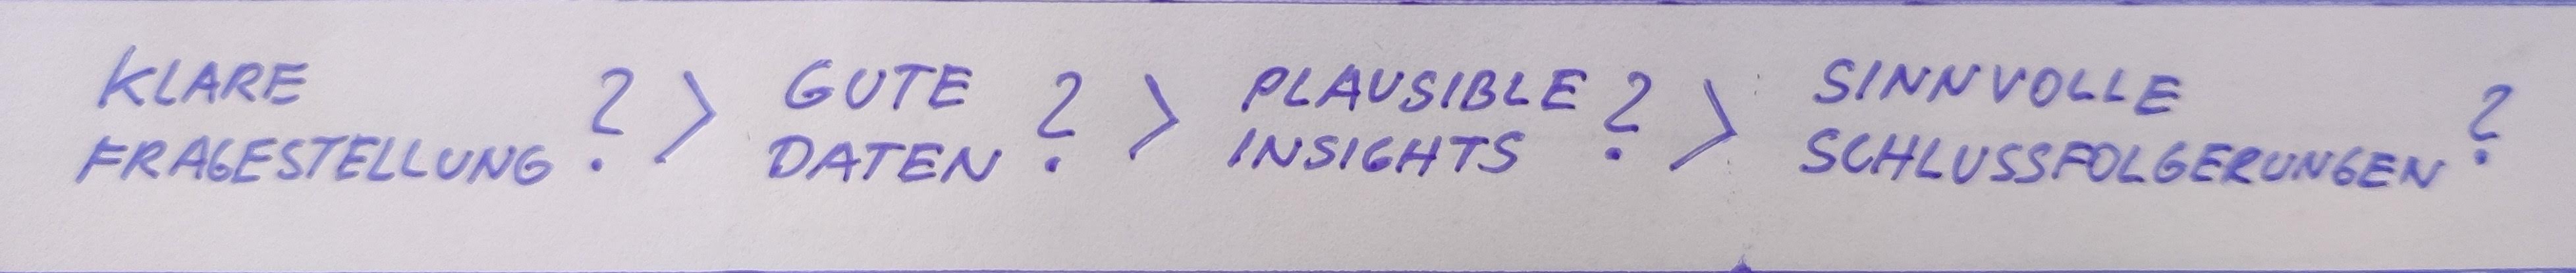 KLARE
FRAGESTELLUNG ? >
GUTE
DATEN ? >
PLAUSIBLE
INSIGHTS ? >
SINNVOLLE
SCHLUSSFOLGERUNGEN ?